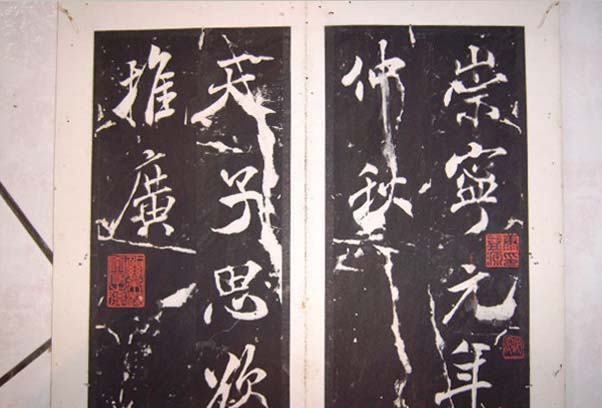 崇寧元年
仲秋
天子思欲
推廣